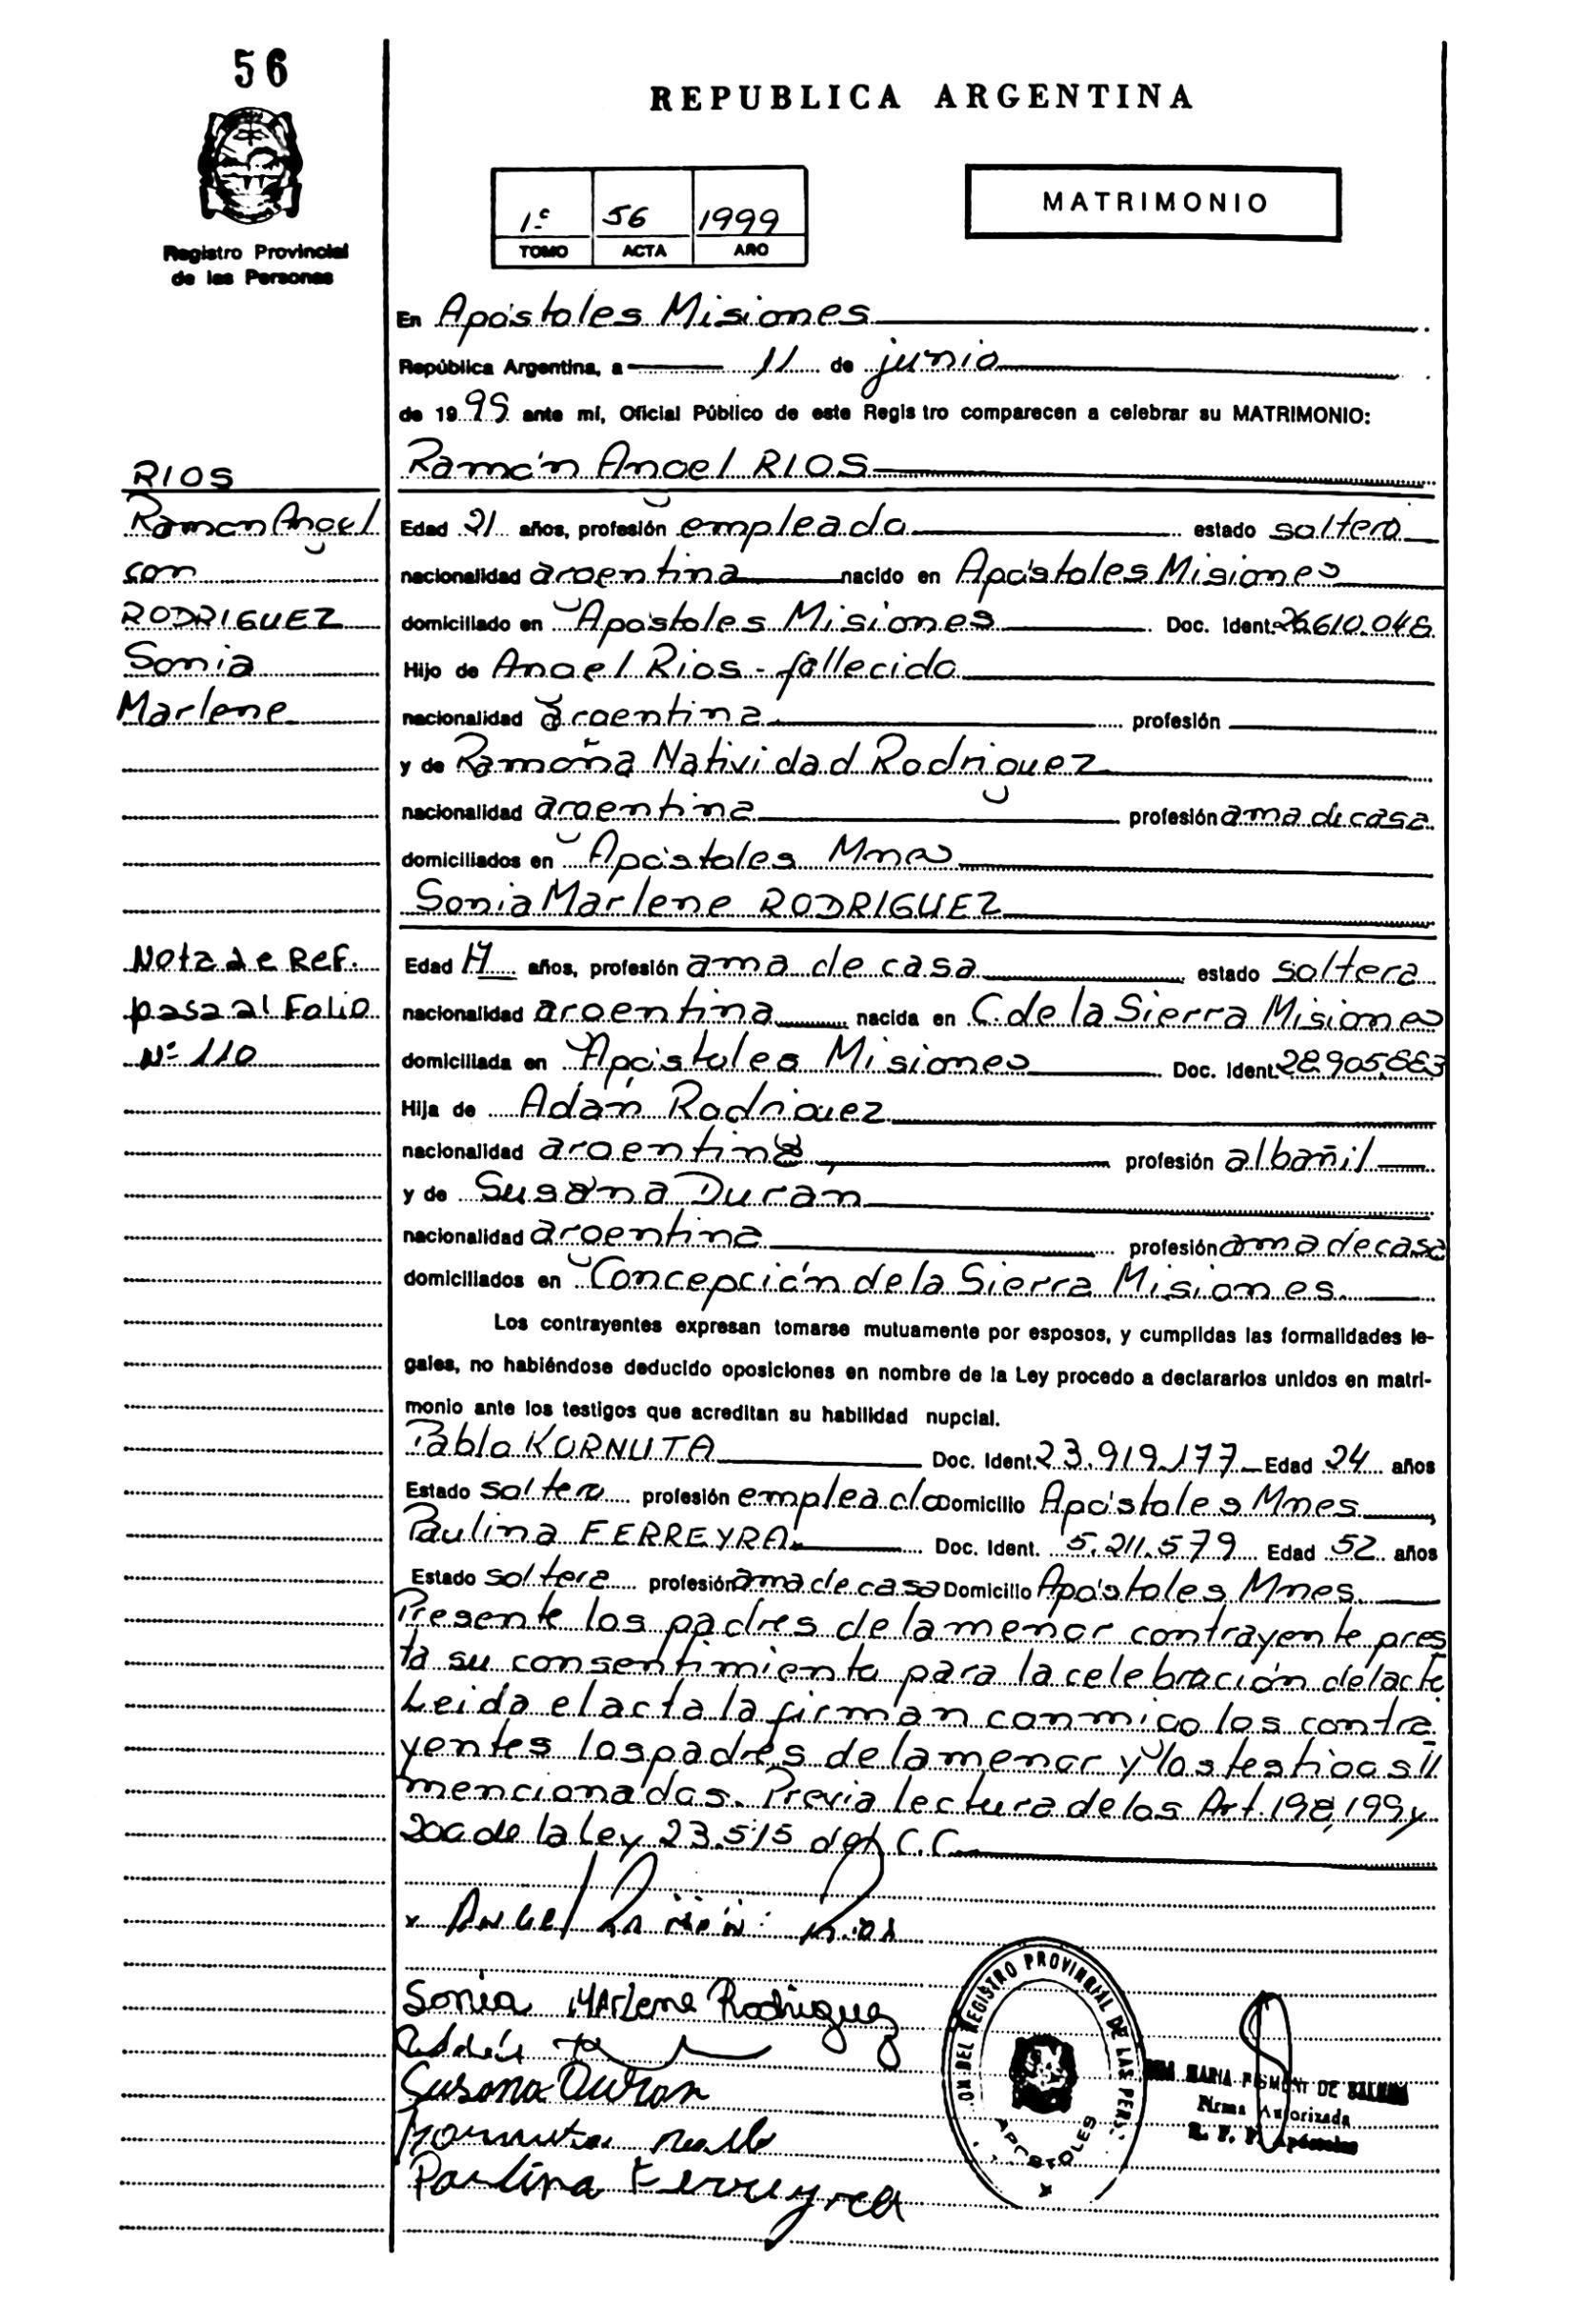 56
REPUBLICA ARGENTINA
Registro Provincial
de las Personas
1º 56 1999
TOMO ACTA AÑO
MATRIMONIO
En Apóstoles Misiones
República Argentina, a 11 de junio
de 1999 ante mí, Oficial Público de este Registro comparecen a celebrar su MATRIMONIO:
RIOS
Ramon Angel
con
RODRIGUEZ
Sonia
Marlene
Nota de Ref.
pasa al Folio
Nº 110
Ramón Angel RIOS
Edad 21 años, profesión empleado estado soltero
nacionalidad argentina nacido en Apóstoles Misiones
domiciliado en Apóstoles Misiones Doc. Ident. 26.610.048
Hijo de Angel Rios - fallecido
nacionalidad argentina profesión
y de Ramona Natividad Rodriguez
nacionalidad argentina profesión ama de casa
domiciliados en Apóstoles Mnes
Sonia Marlene RODRIGUEZ
Edad 17 años, profesión ama de casa estado soltera
nacionalidad argentina nacida en C. de la Sierra Misiones
domiciliada en Apóstoles Misiones Doc. Ident. 28.905.883
Hija de Adán Rodriguez
nacionalidad argentina profesión albañil
y de Susana Duran
nacionalidad argentina profesión ama de casa
domiciliados en Concepción de la Sierra Misiones.
Los contrayentes expresan tomarse mutuamente por esposos, y cumplidas las formalidades le-
gales, no habiéndose deducido oposiciones en nombre de la Ley procedo a declararlos unidos en matri-
monio ante los testigos que acreditan su habilidad nupcial.
Pablo KORNUTA Doc. Ident. 23.919.177 Edad 24 años
Estado soltero profesión empleado Domicilio Apóstoles Mnes
Paulina FERREYRA Doc. Ident. 5.211.579 Edad 52 años
Estado soltera profesión ama de casa Domicilio Apóstoles Mnes.
Presente los padres de la menor contrayente pres
ta su consentimiento para la celebración del acte
Leida el acta la firman conmigo los contra
yentes los padres de la menor y los testigos
mencionados. Previa lectura de los Art 198, 199 y
200 de la ley 23.515 del C.C.
x Angel Ramón Rios
Sonia Marlene Rodriguez
Susana Duran
Kornuta
Paulina Ferreyra
DEL REGISTRO PROVINCIAL DE LAS PERS.
APOSTOLES
MARIA DE
Firma Autorizada
Apóstoles